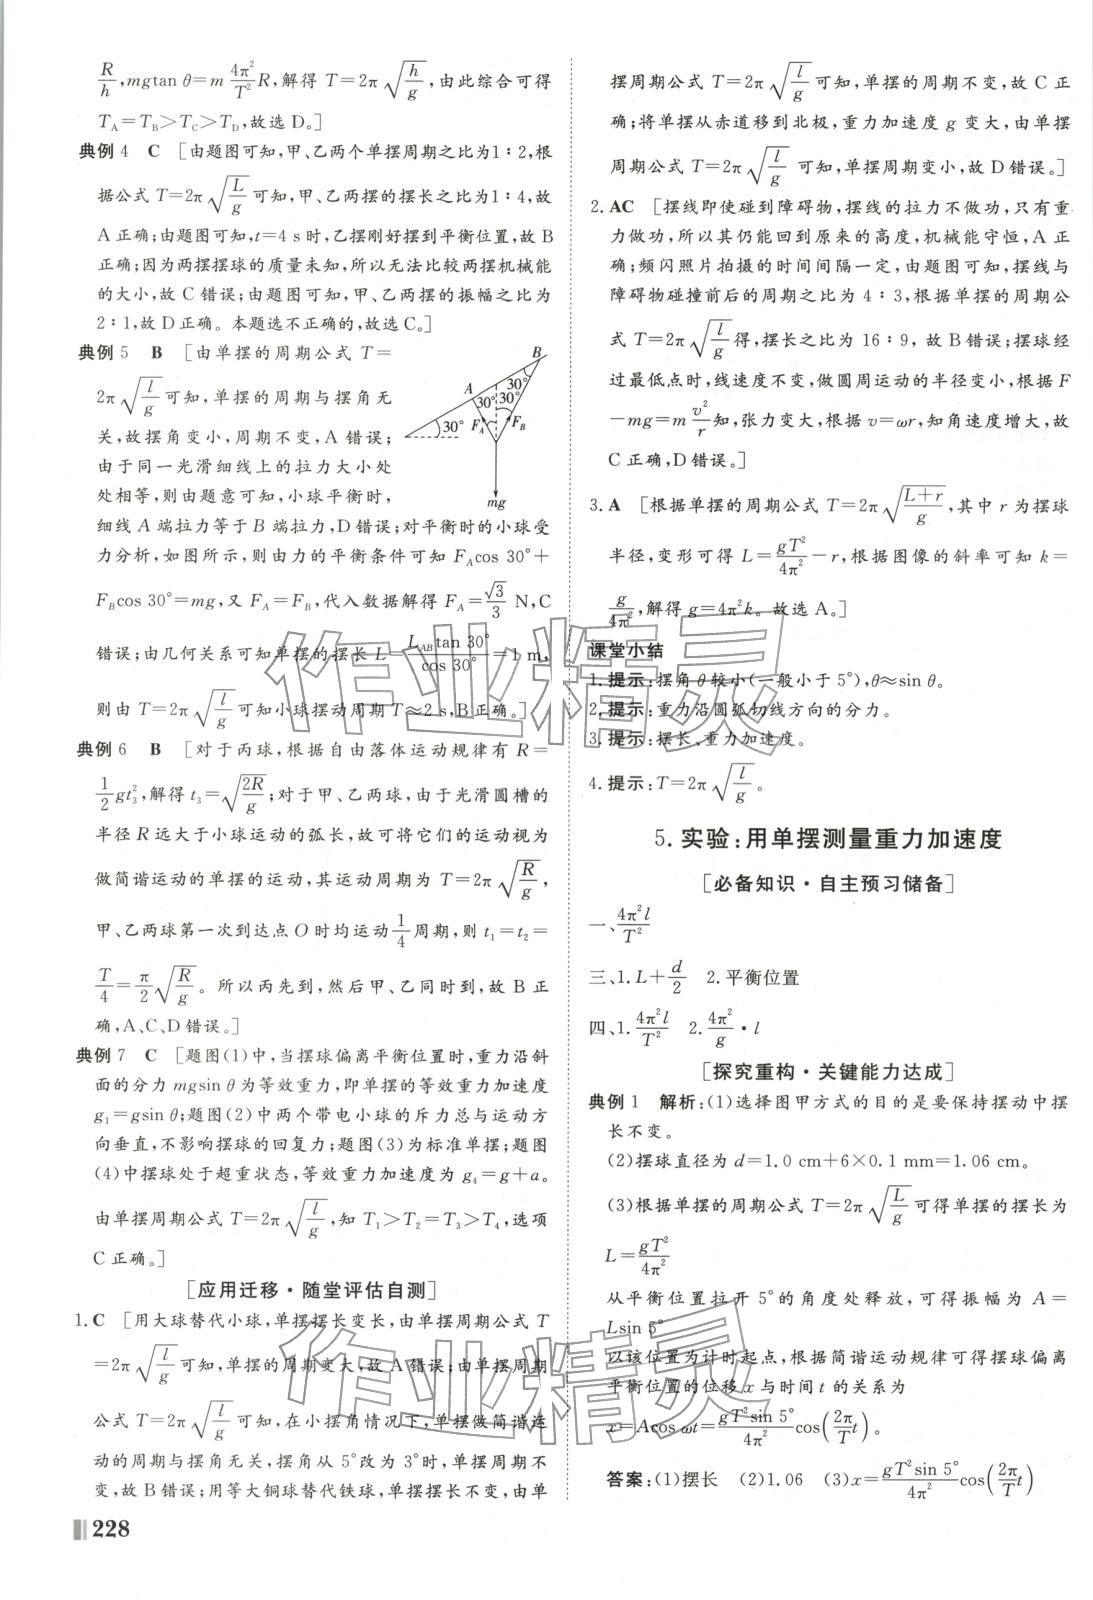 R/h,mgtan θ=m 4π²/T² R,解得 T=2π√(h/g),由此综合可得
T_A=T_B>T_C>T_D,故选 D。]
典例 4　C　[由题图可知,甲、乙两个单摆周期之比为1∶2,根
据公式 T=2π√(L/g)可知,甲、乙两摆的摆长之比为1∶4,故
A正确;由题图可知,t=4 s时,乙摆刚好摆到平衡位置,故 B
正确;因为两摆摆球的质量未知,所以无法比较两摆机械能
的大小,故 C 错误;由题图可知,甲、乙两摆的振幅之比为
2∶1,故 D正确。本题选不正确的,故选 C。]
典例 5　B　[由单摆的周期公式 T=
2π√(l/g)可知,单摆的周期与摆角无
关,故摆角变小,周期不变,A 错误;
由于同一光滑细线上的拉力大小处
处相等,则由题意可知,小球平衡时,
B
A
30°
30°
30°
30°
F_A
F_B
mg
细线 A 端拉力等于 B 端拉力,D 错误;对平衡时的小球受
力分析,如图所示,则由力的平衡条件可知 F_Acos 30°+
F_Bcos 30°=mg,又 F_A=F_B,代入数据解得 F_A=√3/3 N,C
错误;由几何关系可知单摆的摆长 L=L_AB tan 30°/cos 30°=1 m,
则由 T=2π√(l/g)可知小球摆动周期 T≈2 s,B正确。]
典例 6　B　[对于丙球,根据自由落体运动规律有 R=
1/2 gt₃²,解得 t₃=√(2R/g);对于甲、乙两球,由于光滑圆槽的
半径 R 远大于小球运动的弧长,故可将它们的运动视为
做简谐运动的单摆的运动,其运动周期为 T=2π√(R/g),
甲、乙两球第一次到达点 O 时均运动1/4周期,则 t₁=t₂=
T/4=π/2√(R/g)。所以丙先到,然后甲、乙同时到,故 B 正
确,A、C、D错误。]
典例 7　C　[题图(1)中,当摆球偏离平衡位置时,重力沿斜
面的分力 mgsin θ为等效重力,即单摆的等效重力加速度
g₁=gsin θ;题图(2)中两个带电小球的斥力总与运动方
向垂直,不影响摆球的回复力;题图(3)为标准单摆;题图
(4)中摆球处于超重状态,等效重力加速度为 g₄=g+a。
由单摆周期公式 T=2π√(l/g),知 T₁>T₂=T₃>T₄,选项
C正确。]
[应用迁移·随堂评估自测]
1.C　[用大球替代小球,单摆摆长变长,由单摆周期公式 T
=2π√(l/g)可知,单摆的周期变大,故 A 错误;由单摆周期
公式 T=2π√(l/g)可知,在小摆角情况下,单摆做简谐运
动的周期与摆角无关,摆角从5°改为3°时,单摆周期不
变,故 B 错误;用等大铜球替代铁球,单摆摆长不变,由单
228
摆周期公式 T=2π√(l/g)可知,单摆的周期不变,故 C 正
确;将单摆从赤道移到北极,重力加速度 g 变大,由单摆
周期公式 T=2π√(l/g) 可知,单摆周期变小,故 D错误。]
2.AC　[摆线即使碰到障碍物,摆线的拉力不做功,只有重
力做功,所以其仍能回到原来的高度,机械能守恒,A 正
确;频闪照片拍摄的时间间隔一定,由题图可知,摆线与
障碍物碰撞前后的周期之比为 4∶3,根据单摆的周期公
式 T=2π√(l/g)得,摆长之比为 16∶9,故 B 错误;摆球经
过最低点时,线速度不变,做圆周运动的半径变小,根据 F
-mg=m v²/r知,张力变大,根据 v=ωr,知角速度增大,故
C正确,D错误。]
3.A　[根据单摆的周期公式 T=2π√((L+r)/g),其中 r 为摆球
半径,变形可得 L=gT²/4π²-r,根据图像的斜率可知 k=
g/4π²,解得 g=4π²k。故选 A。]
课堂小结
1.提示:摆角 θ 较小(一般小于 5°),θ≈sin θ。
2.提示:重力沿圆弧切线方向的分力。
3.提示:摆长、重力加速度。
4.提示:T=2π√(l/g)。
5.实验:用单摆测量重力加速度
[必备知识·自主预习储备]
一、4π²l/T²
三、1.L+d/2　2.平衡位置
四、1.4π²l/T²　2.4π²/g·l
[探究重构·关键能力达成]
典例 1　解析:(1)选择图甲方式的目的是要保持摆动中摆
长不变。
(2)摆球直径为 d=1.0 cm+6×0.1 mm=1.06 cm。
(3)根据单摆的周期公式 T=2π√(L/g)可得单摆的摆长为
L=gT²/4π²
从平衡位置拉开 5°的角度处释放,可得振幅为 A=
Lsin 5°
以该位置为计时起点,根据简谐运动规律可得摆球偏离
平衡位置的位移 x 与时间 t 的关系为
x=Acos ωt=gT²sin 5°/4π² cos(2π/T t)
答案:(1)摆长　(2)1.06　(3)x=gT²sin 5°/4π² cos(2π/T t)
作业精灵
作业精灵